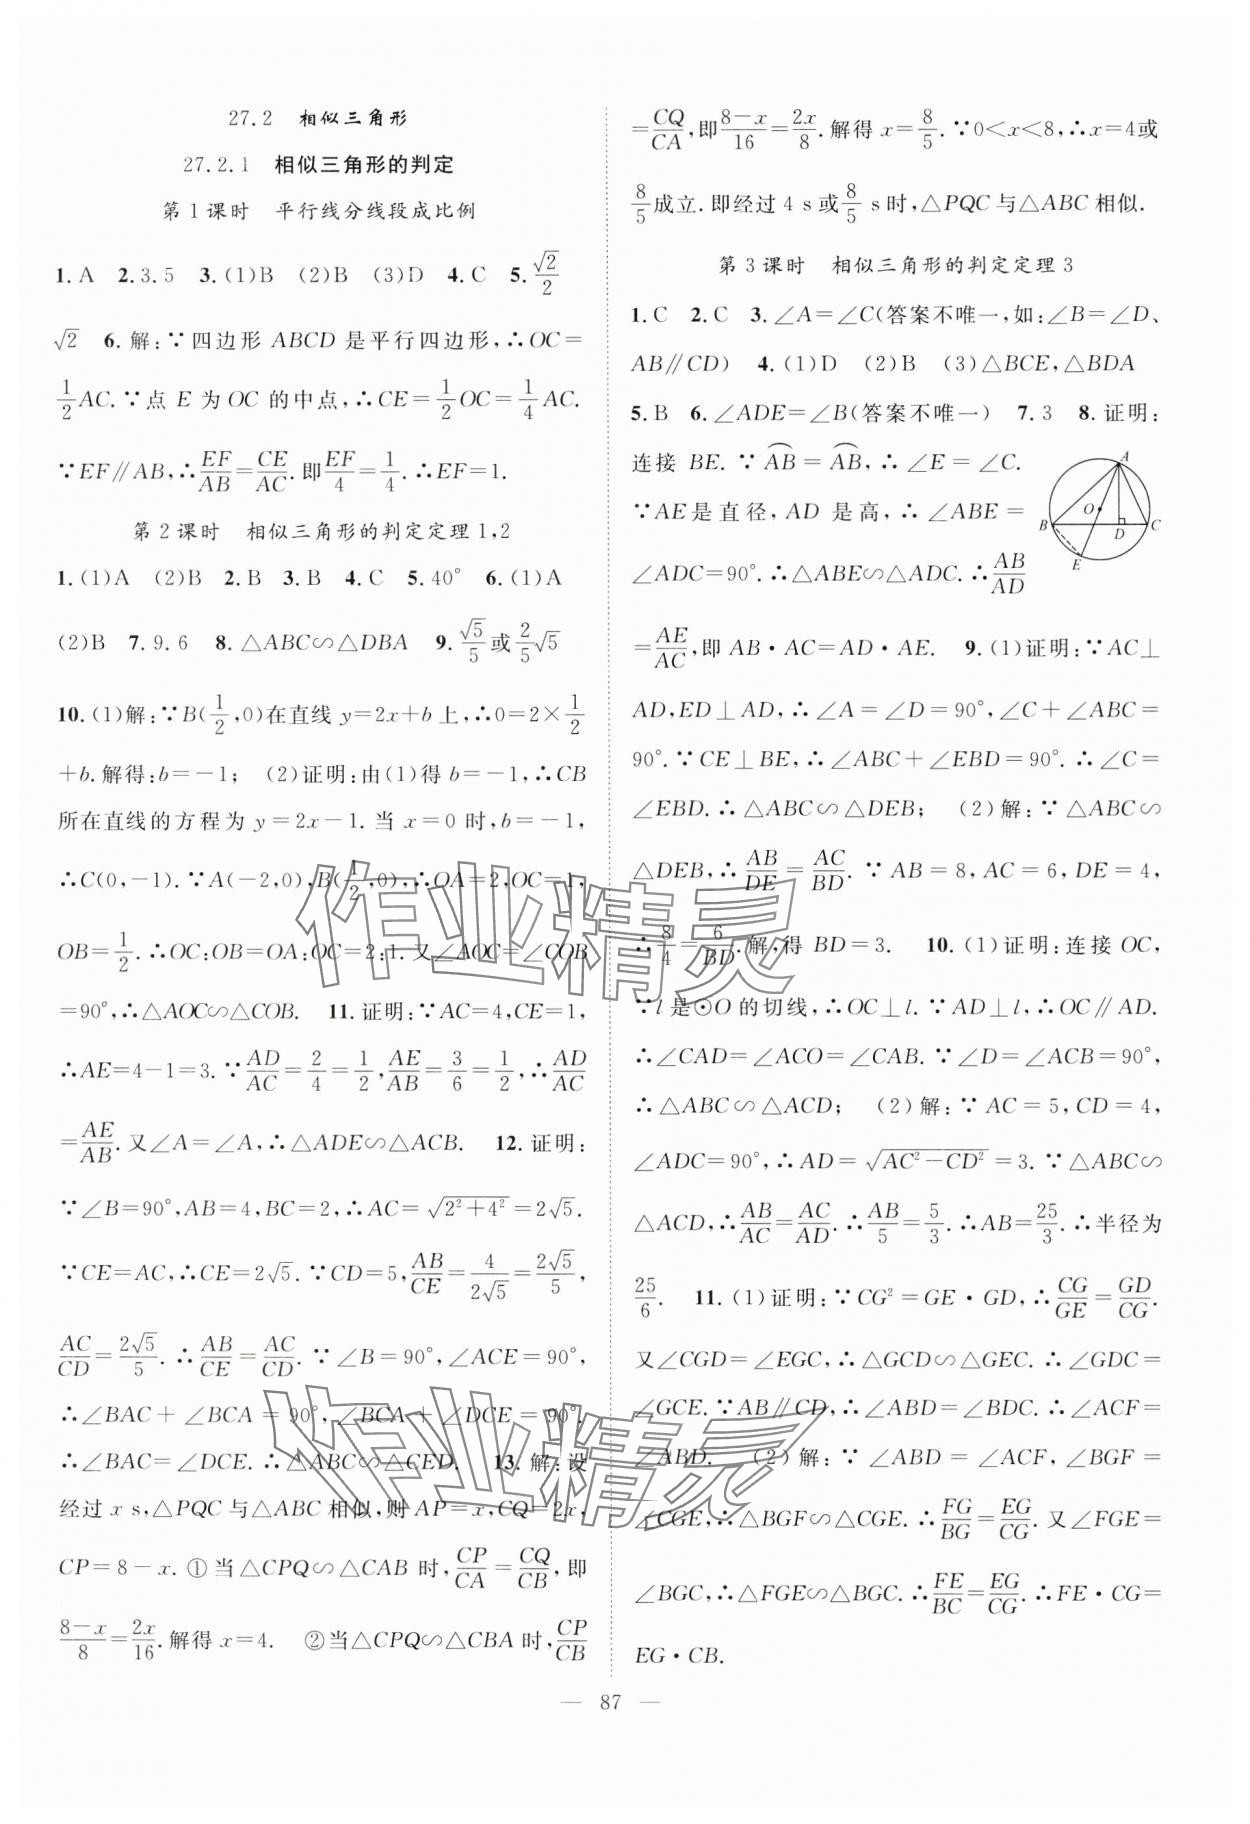 27.2 相似三角形
27.2.1 相似三角形的判定
第1课时 平行线分线段成比例
1.A 2.3.5 3.(1)B (2)B (3)D 4.C 5.√2/2
√2 6.解:∵四边形 ABCD 是平行四边形,∴OC=
1/2AC.∵点 E 为 OC 的中点,∴CE=1/2OC=1/4AC.
∵EF∥AB,∴EF/AB=CE/AC.即EF/4=1/4.∴EF=1.
第2课时 相似三角形的判定定理1,2
1.(1)A (2)B 2.B 3.B 4.C 5.40° 6.(1)A
(2)B 7.9.6 8.△ABC∽△DBA 9.√5/5或2/5√5
10.(1)解:∵B(1/2,0)在直线 y=2x+b 上,∴0=2×1/2
+b.解得:b=-1; (2)证明:由(1)得 b=-1,∴CB
所在直线的方程为 y=2x-1.当 x=0 时,b=-1,
∴C(0,-1).∵A(-2,0),B(1/2,0),∴OA=2,OC=1,
OB=1/2.∴OC:OB=OA:OC=2:1.又∠AOC=∠COB
=90°,∴△AOC∽△COB. 11.证明:∵AC=4,CE=1,
∴AE=4-1=3.∵AD/AC=2/4=1/2,AE/AB=3/6=1/2,∴AD/AC
=AE/AB.又∠A=∠A,∴△ADE∽△ACB. 12.证明:
∵∠B=90°,AB=4,BC=2,∴AC=√(2²+4²)=2√5.
∵CE=AC,∴CE=2√5.∵CD=5,AB/CE=4/2√5=2√5/5,
AC/CD=2√5/5.∴AB/CE=AC/CD.∵∠B=90°,∠ACE=90°,
∴∠BAC+∠BCA=90°,∠BCA+∠DCE=90°.
∴∠BAC=∠DCE.∴△ABC∽△CED. 13.解:设
经过 x s,△PQC与△ABC相似,则 AP=x,CQ=2x,
CP=8-x.①当△CPQ∽△CAB 时,CP/CA=CQ/CB,即
8-x/8=2x/16.解得 x=4. ②当△CPQ∽△CBA时,CP/CB
=CQ/CA,即8-x/16=2x/8.解得 x=8/5.∵0<x<8,∴x=4或
8/5成立.即经过 4 s或8/5 s时,△PQC与△ABC相似.
第3课时 相似三角形的判定定理3
1.C 2.C 3.∠A=∠C(答案不唯一,如:∠B=∠D、
AB∥CD) 4.(1)D (2)B (3)△BCE,△BDA
5.B 6.∠ADE=∠B(答案不唯一) 7.3 8.证明:
连接 BE.∵⌒AB=⌒AB,∴∠E=∠C.
∵AE是直径,AD 是高,∴∠ABE=
∠ADC=90°.∴△ABE∽△ADC.∴AB/AD
A
O
B
D
C
E
=AE/AC,即 AB·AC=AD·AE. 9.(1)证明:∵AC⊥
AD,ED⊥AD,∴∠A=∠D=90°,∠C+∠ABC=
90°.∵CE⊥BE,∴∠ABC+∠EBD=90°.∴∠C=
∠EBD.∴△ABC∽△DEB; (2)解:∵△ABC∽
△DEB,∴AB/DE=AC/BD.∵AB=8,AC=6,DE=4,
∴8/4=6/BD.解得 BD=3. 10.(1)证明:连接 OC,
∵l 是⊙O 的切线,∴OC⊥l.∵AD⊥l,∴OC∥AD.
∴∠CAD=∠ACO=∠CAB.∵∠D=∠ACB=90°,
∴△ABC∽△ACD; (2)解:∵AC=5,CD=4,
∠ADC=90°,∴AD=√(AC²-CD²)=3.∵△ABC∽
△ACD,∴AB/AC=AC/AD.∴AB/5=5/3.∴AB=25/3.∴半径为
25/6. 11.(1)证明:∵CG²=GE·GD,∴CG/GE=GD/CG.
又∠CGD=∠EGC,∴△GCD∽△GEC.∴∠GDC=
∠GCE.∵AB∥CD,∴∠ABD=∠BDC.∴∠ACF=
∠ABD. (2)解:∵∠ABD=∠ACF,∠BGF=
∠CGE,∴△BGF∽△CGE.∴FG/BG=EG/CG.又∠FGE=
∠BGC,∴△FGE∽△BGC.∴FE/BC=EG/CG.∴FE·CG=
EG·CB.
87
作业精灵
作业精灵